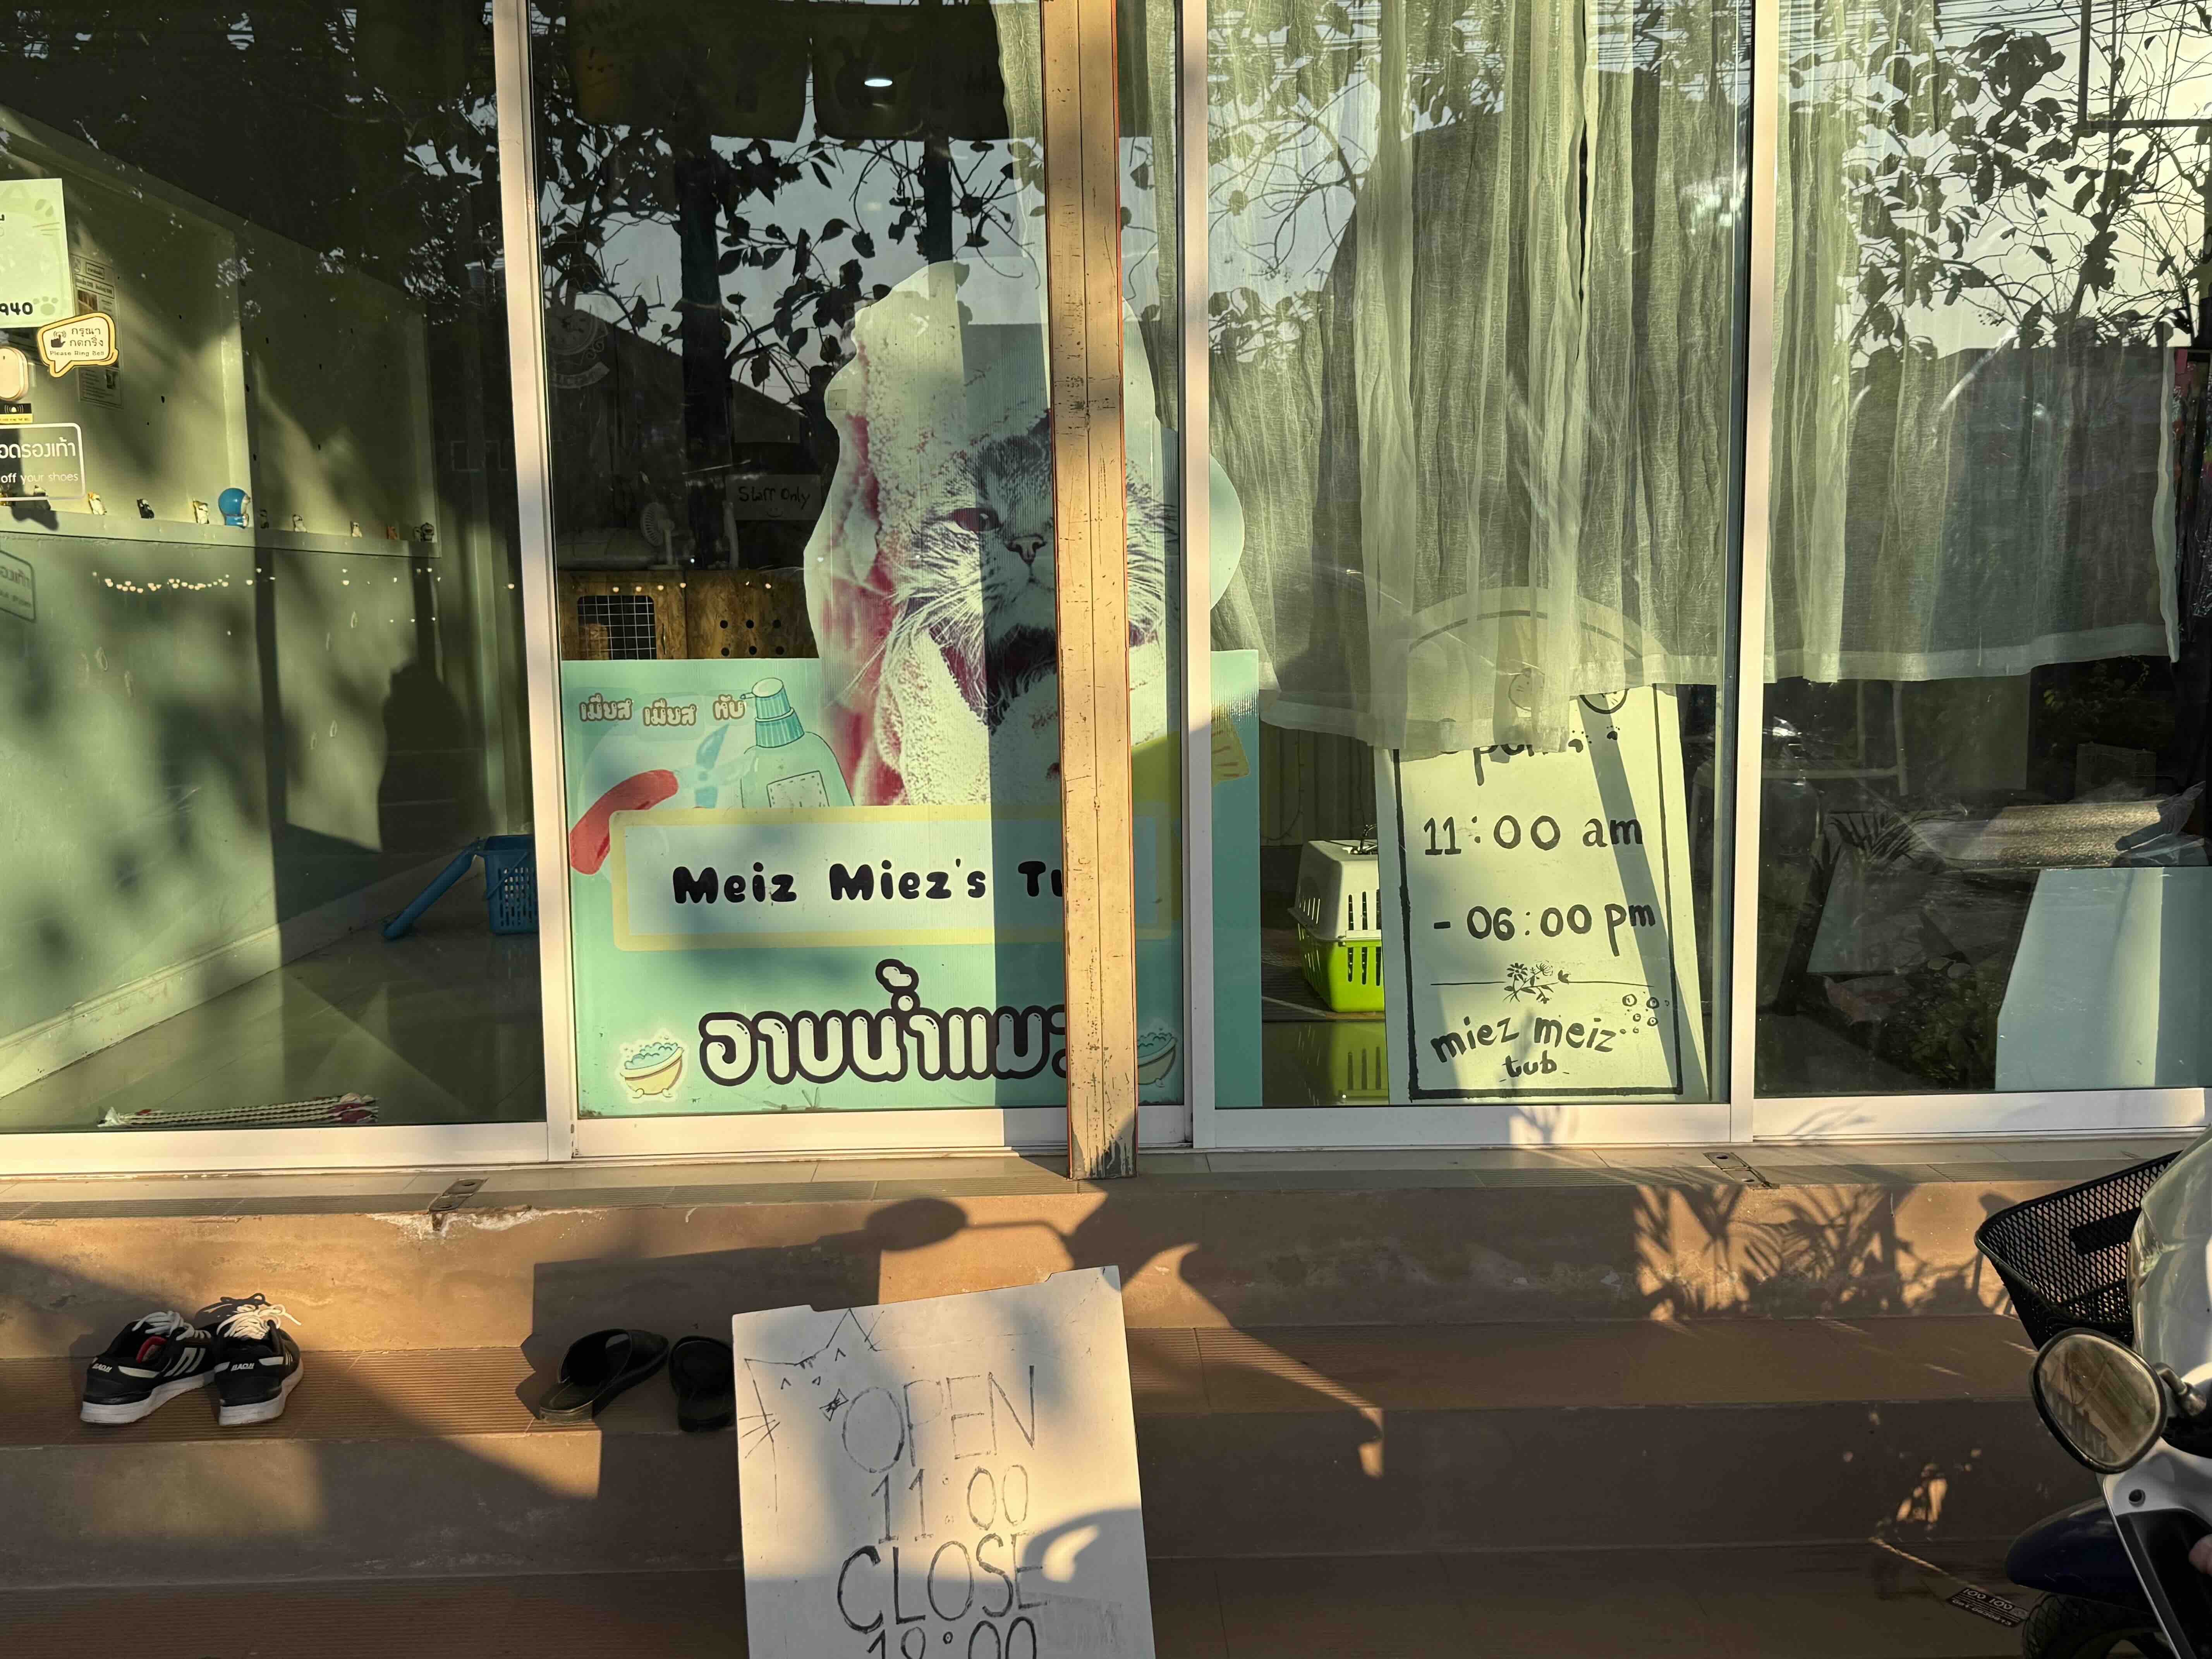 940
กรุณา
กดกริ่ง
Please Ring Bell
อดรองเท้า
off your shoes
Staff Only
เมียส เมียส ทับ
Meiz Miez's Tu
อาบน้ำแมว
Open
11:00 am
- 06:00 pm
miez meiz
tub
OPEN
11:00
CLOSE
18:00
BAOJI
BAOJI